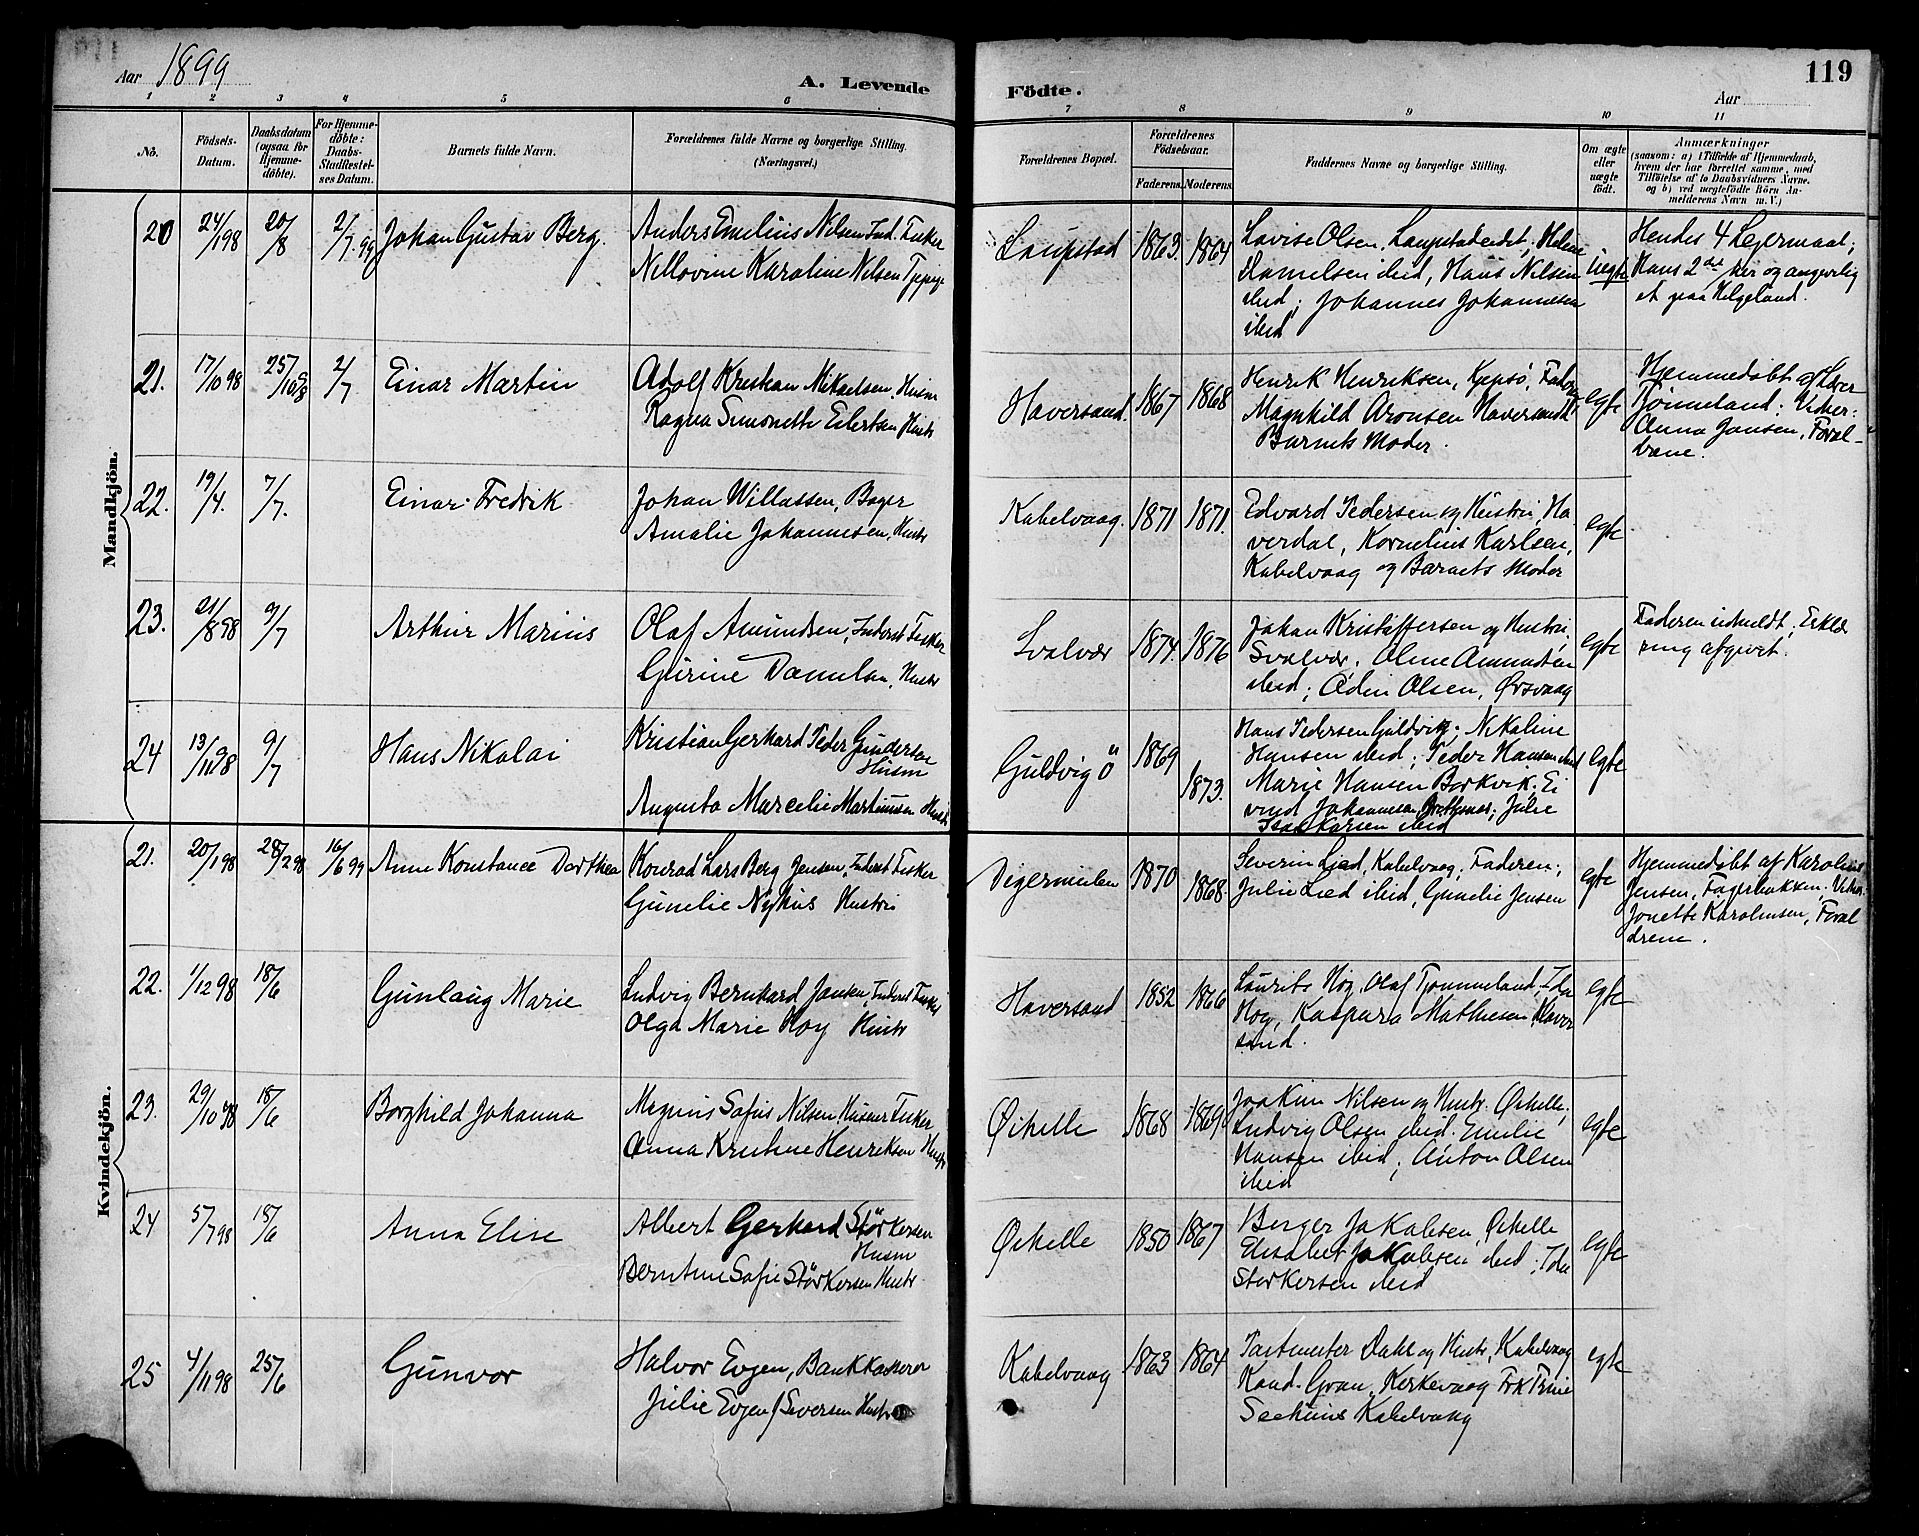 Aar 1899
A. Levende
Födte.
119
Aar
1 2 3 4 5 6 7 8 9 10 11
No.
Födsels-Datum.
Daabsdatum (ogsaa for Hjemme-döbte).
For Hjemme-döbte: Daabs-Stadfæstel-ses Datum.
Barnets fulde Navn.
Forældrenes fulde Navne og borgerlige Stilling. (Næringsvei.)
Forældrenes Bopæl.
Forældrenes Födselsaar.
Faderens. Moderens.
Faddernes Navne og borgerlige Stilling.
Om ægte eller uægte født.
Anmærkninger
(saasom: a) i Tilfælde af Hjemmedaab,
hvem der har forrettet samme, med
Tilføielse af to Daabsvidners Navne.
og b) ved uægtefödte Börn An-
melderens Navn m. V.)
Mandkjön.
20 24/198 20/8 2/7.99 Johan Gustav Berg.
Anders Emelius Nilsen Ind. Fisker
Nellovine Karoline Nilsen
Laupstad 1863. 1864
Lovise Olsen, Laupstadeidet; Helene
ibid, Hans Nilsen
ibid; Johannes Johannesen
ibid
uegte
Hendes 4 Leiermaal;
Hans 2det her og angivelig
et paa Helgeland.
21. 17/10 98 25/10 98 2/7 Einar Martin
Adolf Kristian Mikaelsen, Husm
Ragna Simonette Eilertsen Hustr
Haversand. 1867 1868
Henrik Henriksen, Kjepsø, Fader
Magnhild Aronsen Haversand
Barnets Moder.
egte
Hjemmedøbt af Lærer
Tjønneland: Vidner:
Anna Jansen, Foræl-
drene.
22. 19/4. 7/7. Einar Fredrik
Johan Willassen, Bager
Amalie Johannesen, Hustr
Kabelvaag. 1871 1871.
Edvard Pedersen og Hustru, Ha
verdal, Kornelius Karlsen,
Kabelvaag og Barnets Moder
egte
23. 21/8 98 9/7 Arthur Marius
Olaf Amundsen, Inderst Fisker
Gurine Hustr
Svolvær 1874. 1876
Johan Kristoffersen og Hustru,
Svolvær, Oline Amundsen
ibid; Odin Olsen, Ørsvaag
egte
Faderen udmeldt, Erklæ
ring afgivet.
24 13/11 98 9/7 Hans Nikolai
Kristian Gerhard Peder Gundersen
Husm
Augusta Marcelie Martinusen Hustr
Guldvigö 1869 1873.
Hans Pedersen Guldvik; Nikoline
Hansen ibid; Peder Hansen ibid
Marie Hansen Borkvik. Ei
vind Johannesen Julie
Isaksen ibid
egte
Kvindekjön.
21. 20/1 98 28/2 98 16/6 99 Anne Konstance Dorthea
Konrad Lars Berg Jensen, Inderst Fisker
Gunelie Nyhus Hustru
Digermulen 1870 1868
Severin Lied, Kabelvaag, Faderen;
Julie Lied ibid, Gunelie Jensen
egte
Hjemmedøbt af Karoline
Jensen, Fagerbakken. Vidner
Jonette Karolinsen, Foræl
drene.
22. 1/12 98 18/6 Gunlaug Marie
Ludvig Bernhard Jansen, Inderst Fisker
Olga Marie Høy Hustr
Haversand 1852 1866
Laurits Høg, Olaf Tjønneland, Ida
Høg, Kaspara Mathiesen Haver
sand.
egte
23. 29/10 98 18/6 Borghild Johanna
Magnus Sofus Nilsen Husm. Fisker
Anna Kristine Henriksen Hustr
Øihelle 1868 1869
Joakim Nilsen og Hustr. Øihelle,
Ludvig Olsen ibid. Emilie
Hansen ibid; Anton Olsen
ibid
egte
24 5/7 98 18/6 Anna Elise
Albert Gerhard Størkersen
Husm
Berntine Sofie Störkersen Hustr
Øihelle 1850 1867
Berger Jakobsen, Øihelle
Elisabet Jakobsen ibid; Ida
Størkersen ibid
egte
25 4/11 98 25/6 Gunvor
Halvor Evjen, Bankkasserer
Julie Evjen f Siversen Hustr
Kabelvaag 1863 1864
Postmester Dahl og Hustr, Kabelvaag
Kand. Gran, Kirkevaag Frk Trine
Kabelvaag
egte